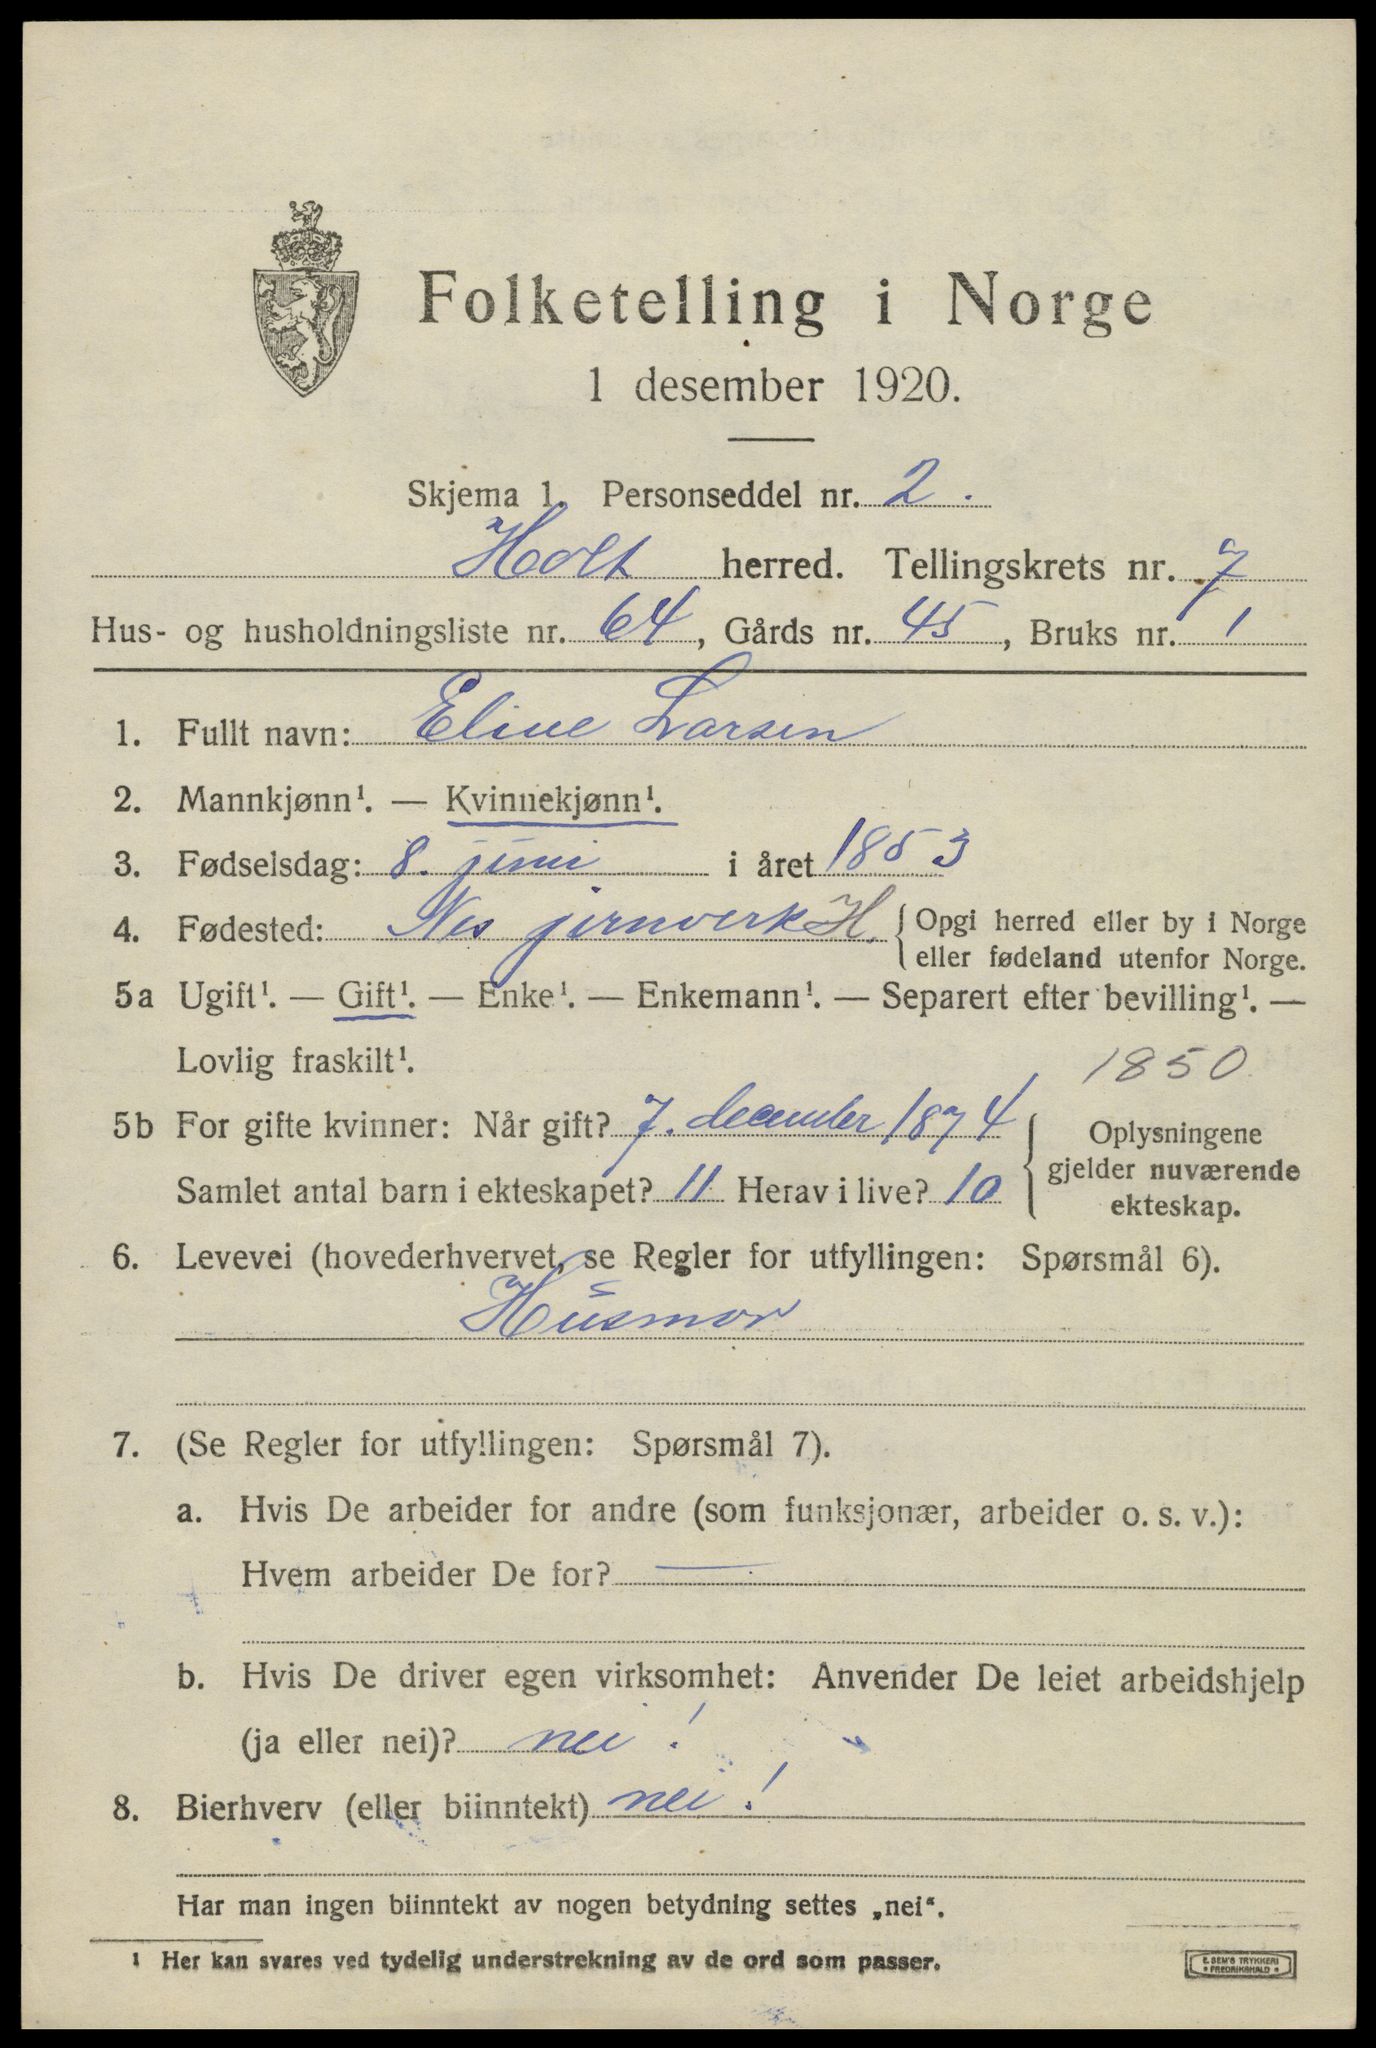 Folketelling i Norge
1 desember 1920.
Skjema 1. Personseddel nr. 2.
Holt herred. Tellingskrets nr. 7
Hus- og husholdningsliste nr. 64, Gårds nr. 45, Bruks nr. 1
1. Fullt navn: Eline Larsen
2. Mannkjønn¹. — Kvinnekjønn¹.
3. Fødselsdag: 8. juni i året 1853
4. Fødested: Nes jernverk H. { Opgi herred eller by i Norge
eller fødeland utenfor Norge.
5a Ugift¹. — Gift¹. — Enke¹. — Enkemann¹. — Separert efter bevilling¹. —
Lovlig fraskilt¹.
1850
5b For gifte kvinner: Når gift? 7. december 1874
Samlet antal barn i ekteskapet? 11 Herav i live? 10
Oplysningene
gjelder nuværende
ekteskap.
6. Levevei (hovederhvervet, se Regler for utfyllingen: Spørsmål 6).
Husmor
7. (Se Regler for utfyllingen: Spørsmål 7).
a. Hvis De arbeider for andre (som funksjonær, arbeider o. s. v.):
Hvem arbeider De for? —
b. Hvis De driver egen virksomhet: Anvender De leiet arbeidshjelp
(ja eller nei)? nei!
8. Bierhverv (eller biinntekt) nei!
Har man ingen biinntekt av nogen betydning settes „nei“.
¹ Her kan svares ved tydelig understrekning av de ord som passer.
E. SEM'S TRYKKERI
• FREDRIKSHALD •